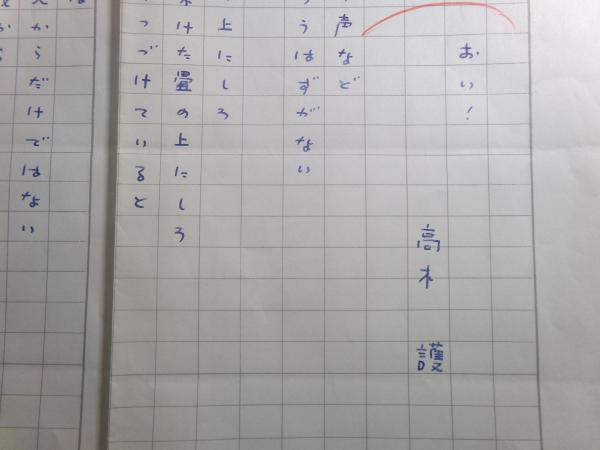 おい!
高木 護
声など
うはずがない
上にしろ
けた畳の上にしろ
っづけていると
からだけではない